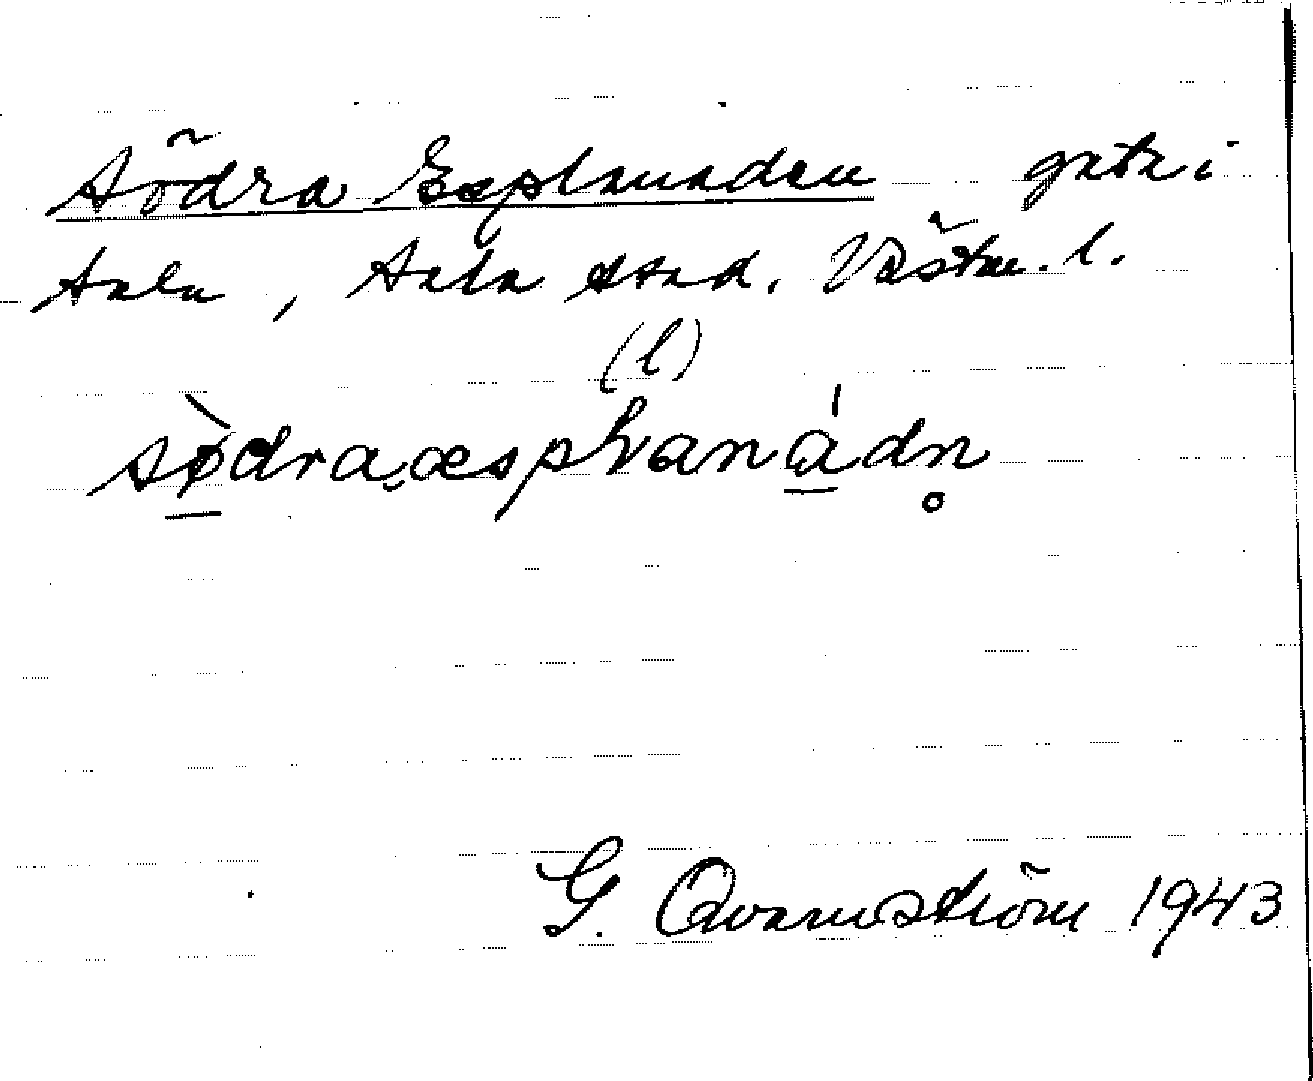 Södra Esplanaden gata i
Sala, Sala stad. Västm. l.
(l)
sø̀draæsplanádn̥
G. Qvarnström 1943